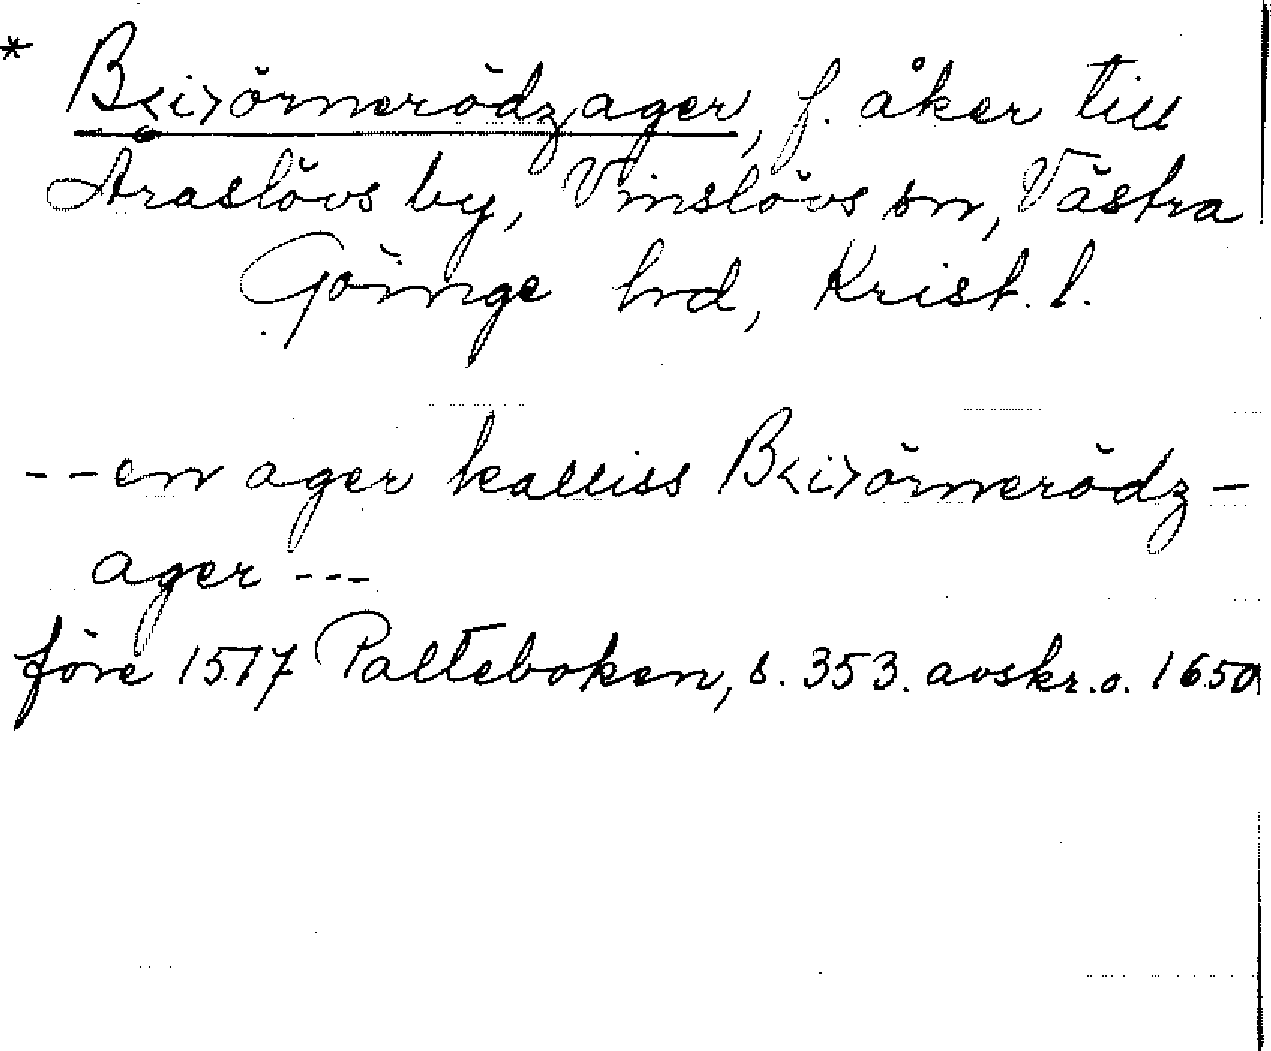 * B<i>örnerödzager, f. åker till
Araslövs by, Vinslövs sn, Västra
Göinge hd, Krist. l.
--en ager kalliss B<i>örnerödz-
ager ---
före 1517 Palteboken, s. 353. avskr. o. 1650